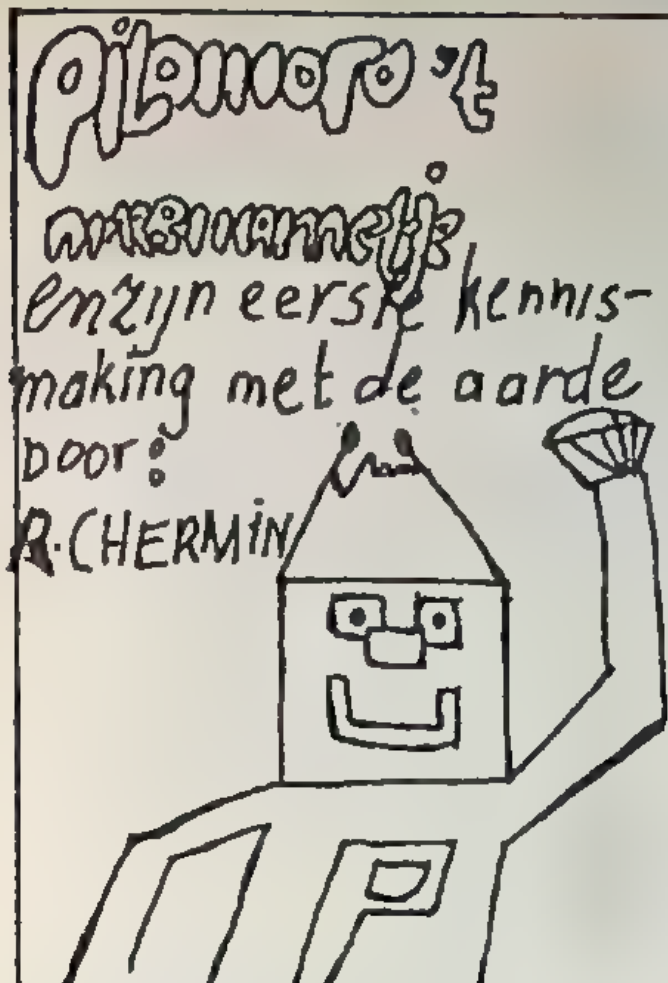 PiLomoro 't
marsmannetje
en zijn eerste kennis-
making met de aarde
DOOR:
R. CHERMIN
P